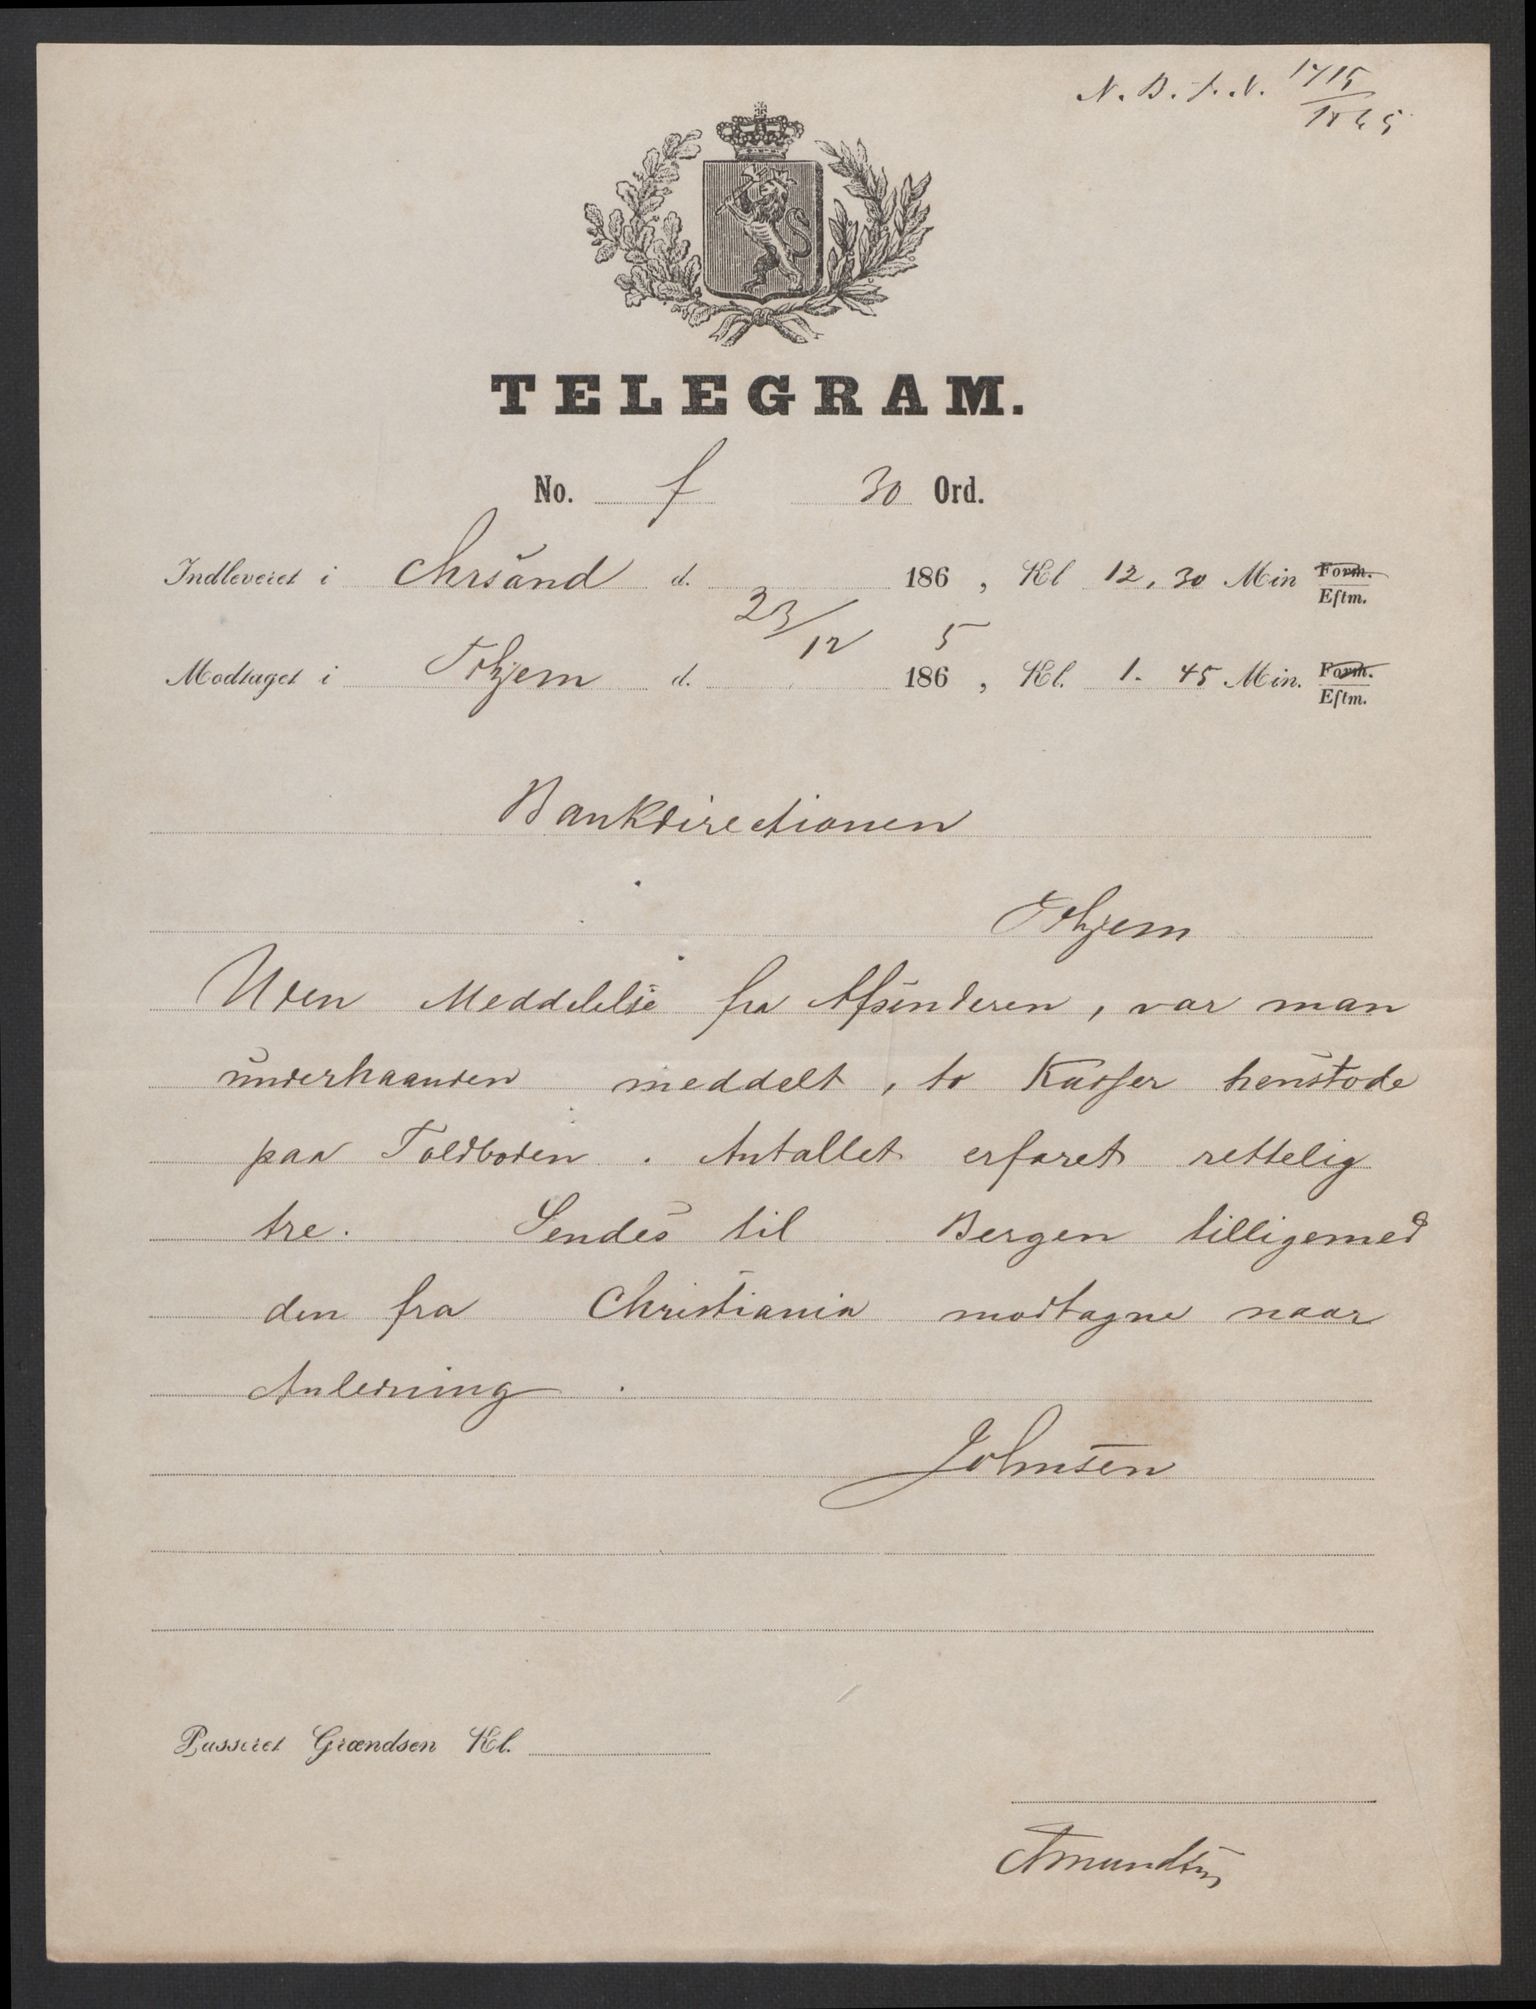 N. B. J. N. 1715/1865
TELEGRAM.
No. f 30 Ord.
Indleveret i Chrsand d. 186 , Kl 12, 30 Min Form. Eftm.
23/12 5
Modtaget i Thjem d. 186 , Kl. 1. 45 Min. Form. Eftm.
Bankdirectionen
Thjem
Uden Meddelelse fra Afsenderen, var man
underhaanden meddelt, to Kasser henstode
paa Toldboden. Antallet erfaret rettelig
tre. Sendes til Bergen tilligemed
den fra Christiania modtagne naar
Anledning.
Johnsen
Passeret Grændsen Kl.
Amundsen